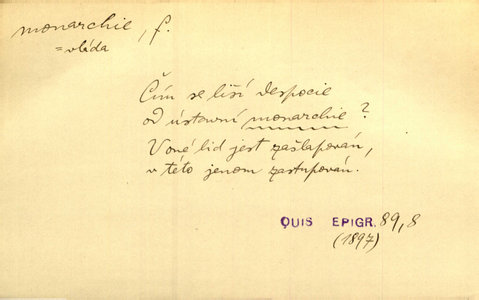 monarchie, f.
= vláda
Čím se liší despocie
od ústavní monarchie?
V oné lid jest zašlapován,
v této jenom zastupován.
QUIS EPIGR. 89,8
(1897)